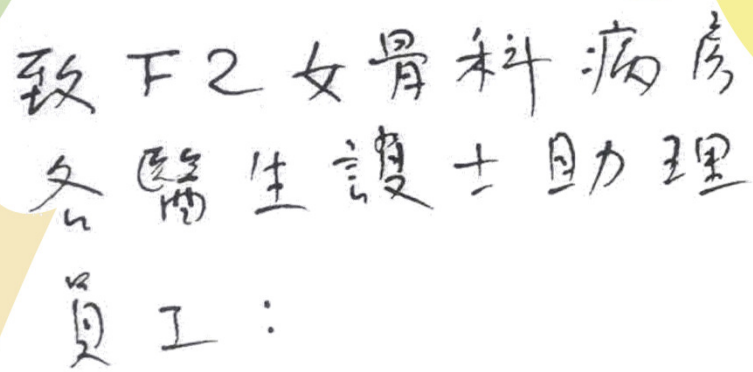 致F2女骨科病房
各醫生護士助理
員工：